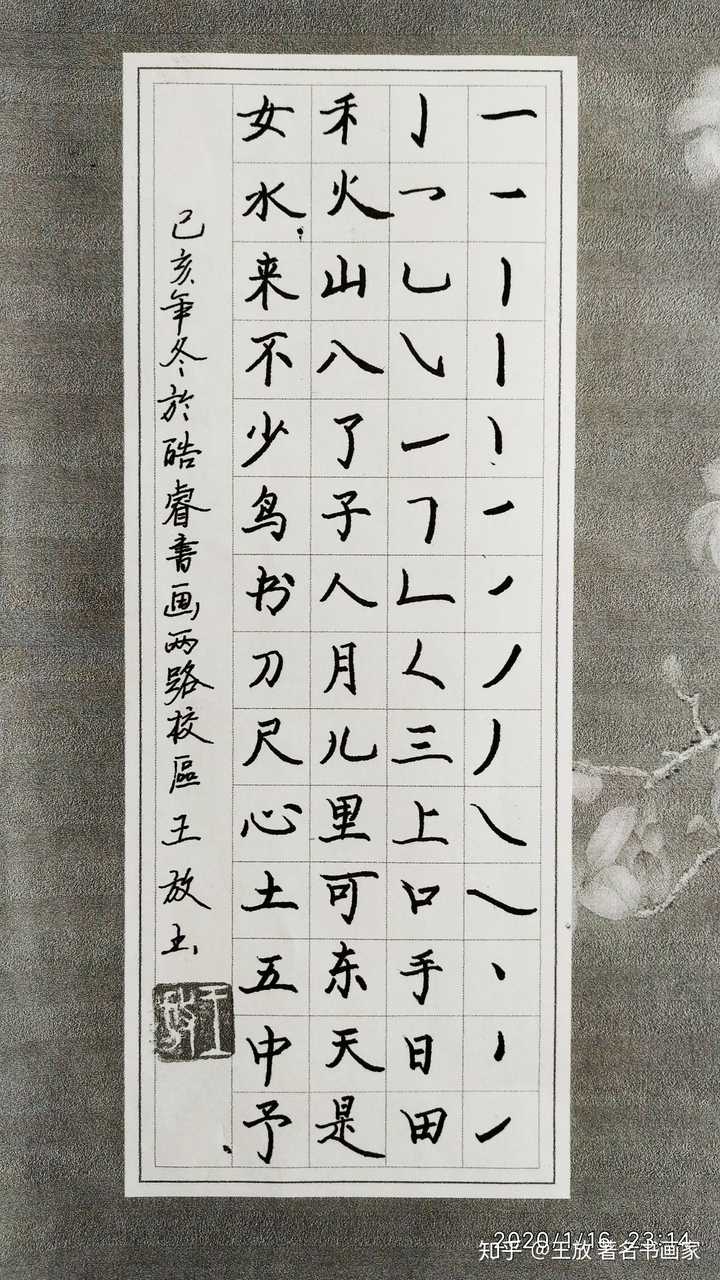 三上口手日田
禾火山八了子人月儿里可东天是
女水来不少鸟书刀尺心土五中予
己亥年冬於皓睿書画两路校區王放书
王放
2020/1/16 23:14
知乎 @王放 著名书画家